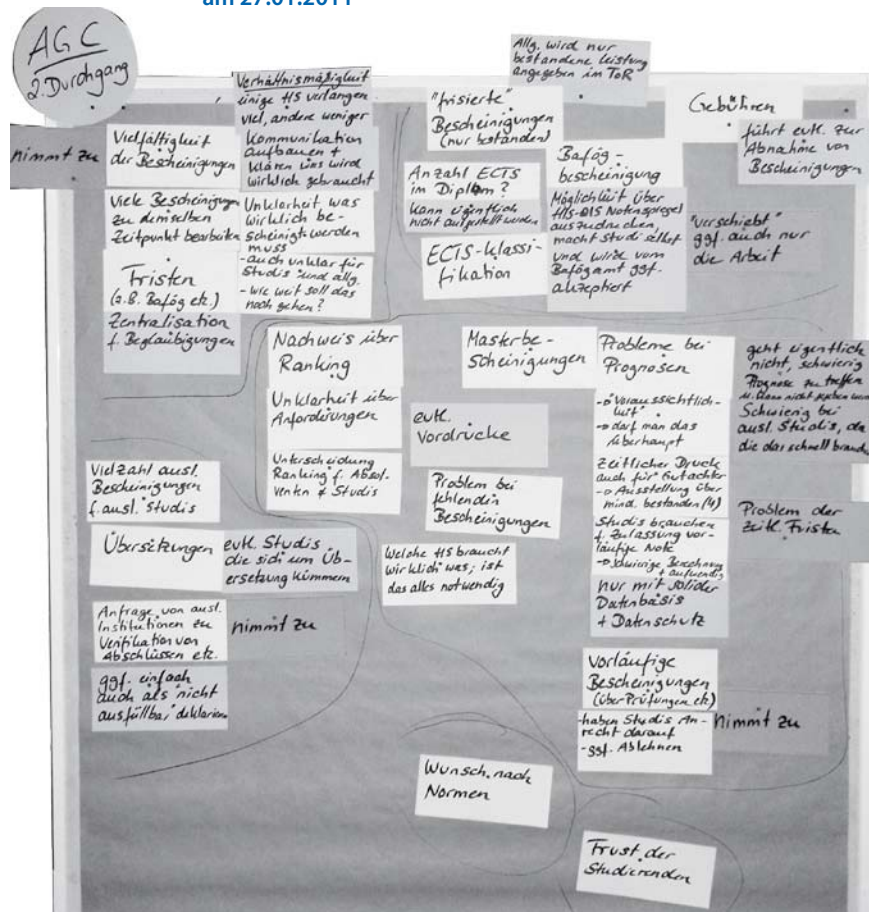 am 27.01.2011
AGC
2. Durchgang
nimmt zu
Vielfältigkeit
der Bescheinigungen
Viele Bescheinigungen
zu demselben
Zeitpunkt bearbeiten
Fristen
(z.B. Bafög etc.)
Zentralisation
f. Beglaubigungen
Verhältnismäßigkeit
einige HS verlangen
viel, andere weniger
Kommunikation
aufbauen +
klären was wird
wirklich gebraucht
Unklarheit was
wirklich be-
scheinigt werden
muss
- auch unklar für
Studis und allg.
- wie weit soll das
noch gehen?
"frisierte"
Bescheinigungen
(nur bestanden)
Allg. wird nur
bestandene Leistung
angegeben im ToR
Anzahl ECTS
im Diplom?
kann eigentlich
nicht ausgestellt werden
ECTS-Klassi-
fikation
Bafög-
bescheinigung
Möglichkeit über
HIS-QIS Notenspiegel
auszudrucken,
macht Studi selbst
und wird vom
Bafögamt ggf.
akzeptiert
Gebühren
führt evtl. zur
Abnahme von
Bescheinigungen
"verschiebt"
ggf. auch nur
die Arbeit
Nachweis über
Ranking
Unklarheit über
Anforderungen
Unterscheidung
Ranking f. Absol-
venten + Studis
Masterbe-
scheinigungen
evtl.
Vordrücke
Problem bei
fehlenden
Bescheinigungen
Welche HS braucht
wirklich was; ist
das alles notwendig
Probleme bei
Prognosen
- "Voraussichtlich-
keit"
-> darf man das
überhaupt
Zeitlicher Druck
auch für Gutachter
-> Ausstellung über
mind. bestanden (4)
Studis brauchen
f. Zulassung vor-
läufige Note
-> schwierige Berechnung
+ aufwendig
nur mit solider
Datenbasis
+ Datenschutz
geht eigentlich
nicht, schwierig
Prognose zu treffen
kann nicht gegeben
Schwierig bei
ausl. Studis, da
die das schnell brauchen
Problem der
zeitl. Fristen
Vielzahl ausl.
Bescheinigungen
f. ausl. Studis
Übersetzungen
evtl. Studis
die sich um Üb-
ersetzung kümmern
Anfrage von ausl.
Institutionen zu
Verifikation von
Abschlüssen etc.
nimmt zu
ggf. einfach
auch als "nicht
ausfüllbar" deklarieren
Vorläufige
Bescheinigungen
(über Prüfungen etc)
- haben Studis An-
recht darauf
- ggf. Ablehnen
nimmt zu
Wunsch nach
Normen
Frust der
Studierenden